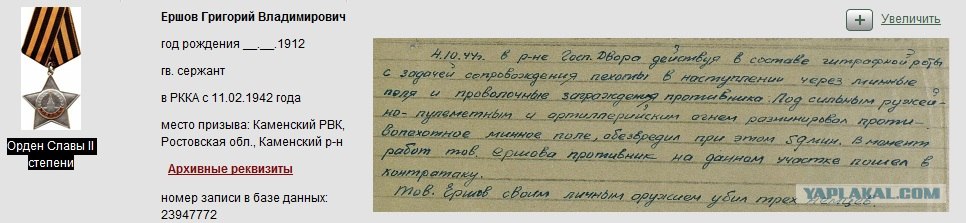 Ершов Григорий Владимирович
год рождения __.__.1912
гв. сержант
в РККА с 11.02.1942 года
место призыва: Каменский РВК,
Ростовская обл., Каменский р-н
Архивные реквизиты
номер записи в базе данных:
23947772
Орден Славы II
степени
Увеличить
4.10.44г. в р-не Госп. Двора действуя в составе штрафной роты
с задачей сопровождения пехоты в наступлении через минные
поля и проволочные заграждения противника. Под сильным ружей-
но-пулеметным и артиллерийским огнем разминировал проти-
вопехотное минное поле, обезвредил при этом 59 мин. В момент
работ тов. Ершова противник на данном участке пошел в
контратаку.
Тов. Ершов своим личным оружием убил трех немцев.
YAPLAKAL.COM